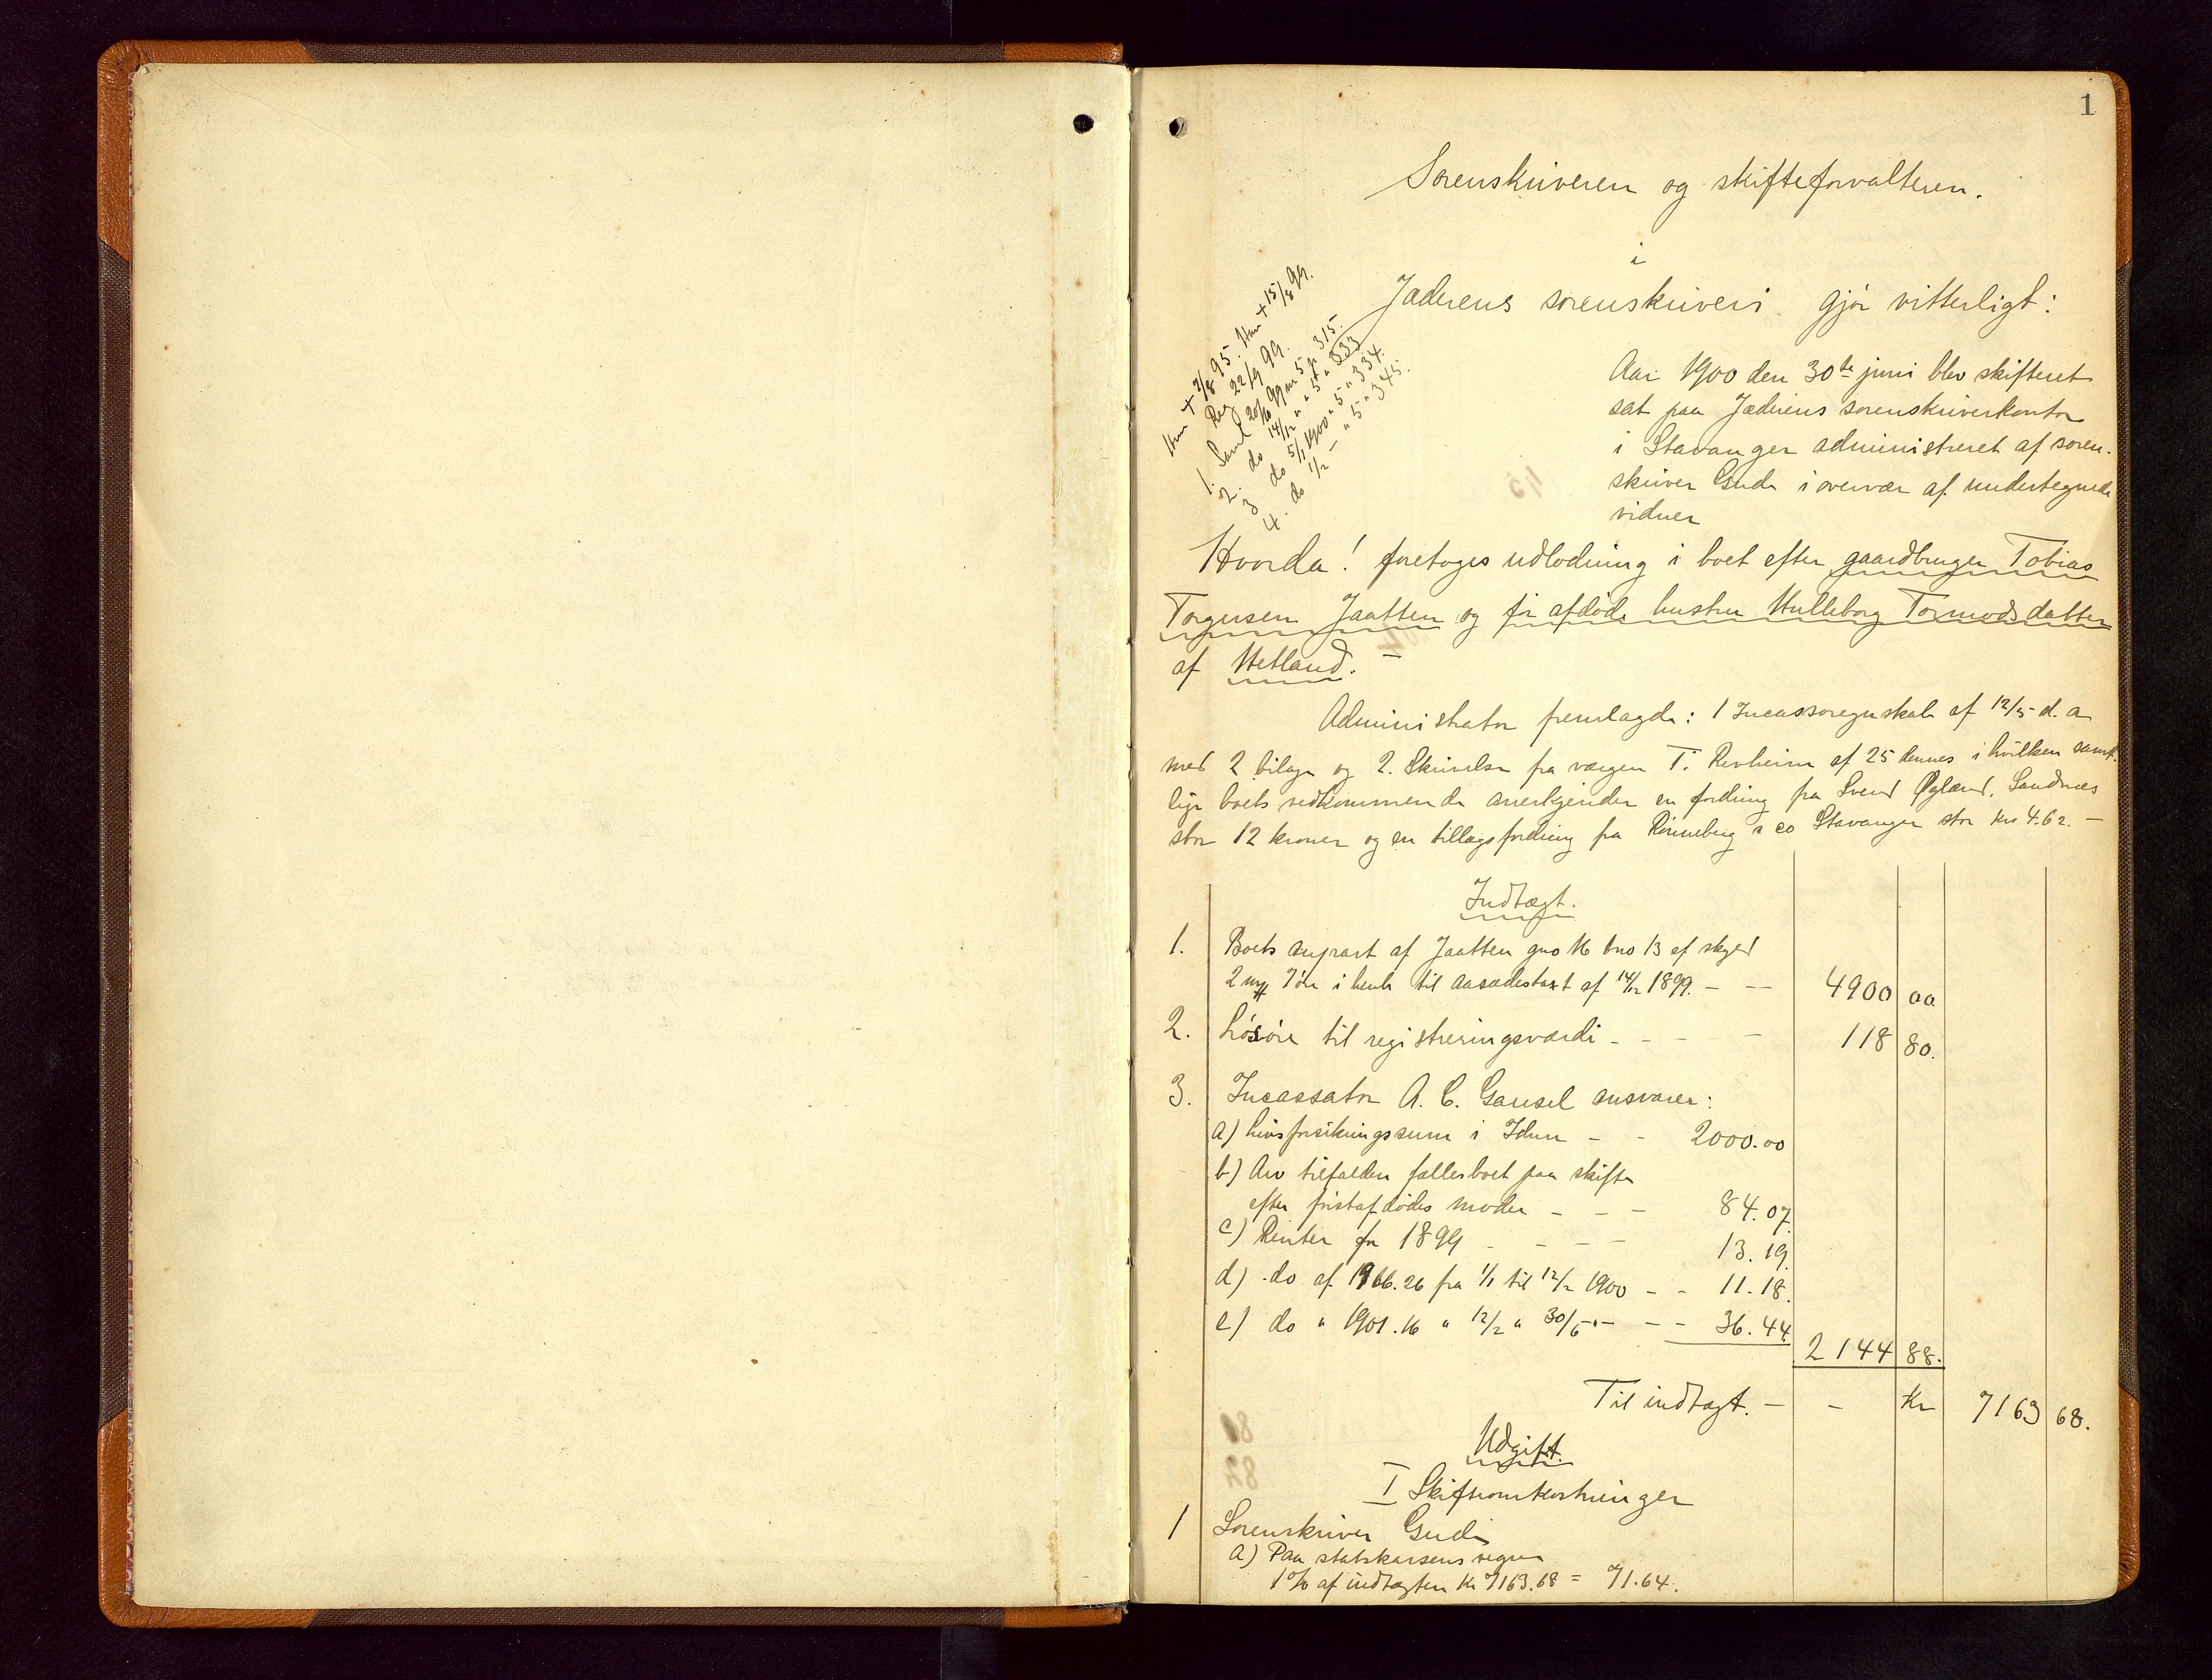 1
Sorenskriveren og skifteforvalteren.
i
Jæderens sorenskriveri gjør vitterligt:
Hun + 2/8 95. Han + 15/8 99.
Reg 22/9 99.
1. Saml 20/10 99 m 5 p 315.
2. do 14/12 " " 5 " 333
3 do 5/1 1900 " 5 " 334.
4. do 1/2 — " 5 " 345.
Aar 1900 den 30te juni blev skifteret
sat paa Jæderens sorenskriverkontor
i Stavanger administreret af soren-
skriver Gude i overvær af undertegnede
vidner
Hvorda! foretoges udlodning i boet efter gaardbruger Tobias
Torgersen Jaatten og før afdøde hustru Hulleborg Tormodsdatter
af Hetland. —
Administrator fremlagde: 1 Incassoregnskab af 12/5 d. a
med 2 bilage og 2. Skrivelse fra værgen T. Revheim af 25 dennes i hvilken samt-
lige boets vedkommende anerkjender en fordring fra Svend Øglænd, Sandnæs
stor 12 kroner og en tillægsfordring fra Rønneberg & co Stavanger stor kr 4.62. —
Indtægt.
1. Boets anpart af Jaatten gno 16 bno 13 af skyld
2 my 7 øre i henh til aasædestaxt af 14/12 1899. — — 4900 00.
2. Løsøre til registreringsværdi - - - - 118 80.
3. Incassator A. C. Gausel ansvarer:
a) Livsforsikringssum i Idun - - 2000.00
b) Arv tilfalden fællesboet paa skifte
efter førstafdødes moder - - - 84.07.
c) Renter for 1899 - - - - 13.19.
d) do af 1966.26 fra 1/1 til 12/2 1900 - - 11.18.
e) do " 1901.16 " 12/2 " 30/6 "- - - 36.44
2144 88.
Til indtægt. — - Kr 7163 68.
Udgift.
I Skifteomkostninger
1 Sorenskriver Gude
a) Paa statskassens vegne
1 % af indtægten Kr 7163.68 = 71.64.